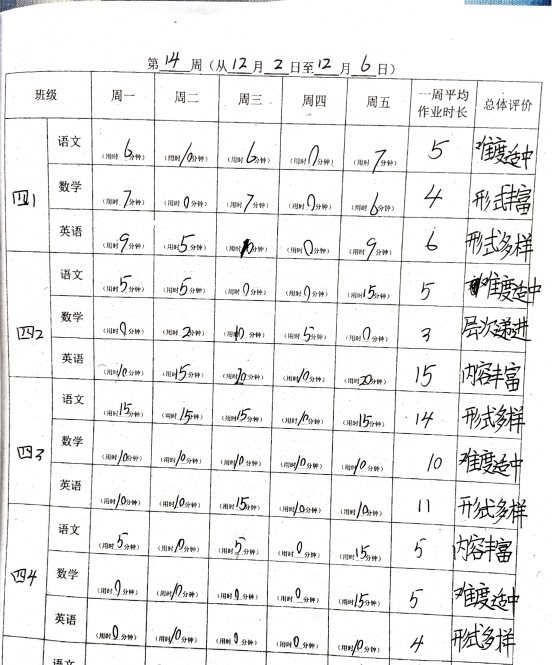 第14周（从12月2日至12月6日）
班级 周一 周二 周三 周四 周五 一周平均作业时长 总体评价
四1 语文 （用时6分钟） （用时10分钟） （用时6分钟） （用时0分钟） （用时7分钟） 5 难度适中
数学 （用时7分钟） （用时0分钟） （用时7分钟） （用时0分钟） （用时6分钟） 4 形式丰富
英语 （用时9分钟） （用时5分钟） （用时10分钟） （用时0分钟） （用时9分钟） 6 形式多样
四2 语文 （用时5分钟） （用时5分钟） （用时0分钟） （用时0分钟） （用时15分钟） 5 难度适中
数学 （用时0分钟） （用时2分钟） （用时10分钟） （用时5分钟） （用时0分钟） 3 层次递进
英语 （用时10分钟） （用时15分钟） （用时20分钟） （用时10分钟） （用时20分钟） 15 内容丰富
四3 语文 （用时15分钟） （用时15分钟） （用时15分钟） （用时10分钟） （用时15分钟） 14 形式多样
数学 （用时10分钟） （用时10分钟） （用时10分钟） （用时10分钟） （用时10分钟） 10 难度适中
英语 （用时10分钟） （用时10分钟） （用时15分钟） （用时10分钟） （用时10分钟） 11 形式多样
四4 语文 （用时5分钟） （用时0分钟） （用时5分钟） （用时0分钟） （用时15分钟） 5 内容丰富
数学 （用时0分钟） （用时10分钟） （用时0分钟） （用时0分钟） （用时15分钟） 5 难度适中
英语 （用时0分钟） （用时10分钟） （用时0分钟） （用时0分钟） （用时10分钟） 4 形式多样
语文